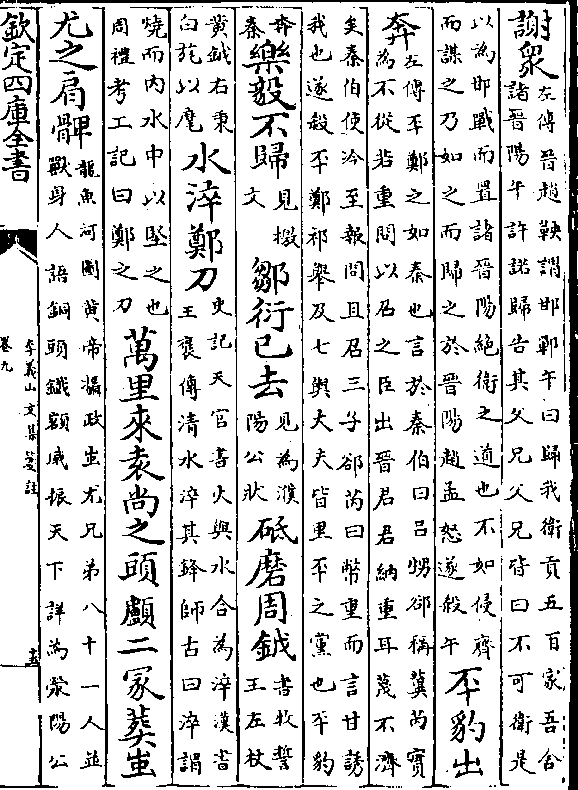 謝衆左傳晉趙鞅謂邯鄲午曰歸我衛貢五百家吾舍
諸晉陽午許諾歸告其父兄父兄皆曰不可衛是
以為邯鄲而置諸晉陽絶衛之道也不如侵齊
而謀之乃如之而歸之於晉陽趙孟怒遂殺午丕豹出
奔左傳丕鄭之如秦也言於秦伯曰吕甥郤稱冀芮實
為不從若重問以召之臣出晉君君納重耳蔑不濟
矣秦伯使冷至報問且召三子郤芮曰幣重而言甘誘
我也遂殺丕鄭祁舉及七輿大夫皆里丕之黨也丕豹
奔秦樂毅不歸見檄文鄒衍已去見為濮陽公狀砥磨周鉞書牧誓王左杖
黄鉞右秉白旄以麾水淬鄭刀史記天官書火與水合為淬漢書
王褒傳清水淬其鋒師古曰淬謂
燒而内水中以堅之也周禮考工記曰鄭之刀萬里來袁尚之頭顱二冢葬蚩
尤之肩髀龍魚河圖黄帝攝政蚩尤兄弟八十一人並
獸身人語銅頭鐵額威振天下詳為滎陽公
欽定四庫全書
李義山文集箋註
卷九